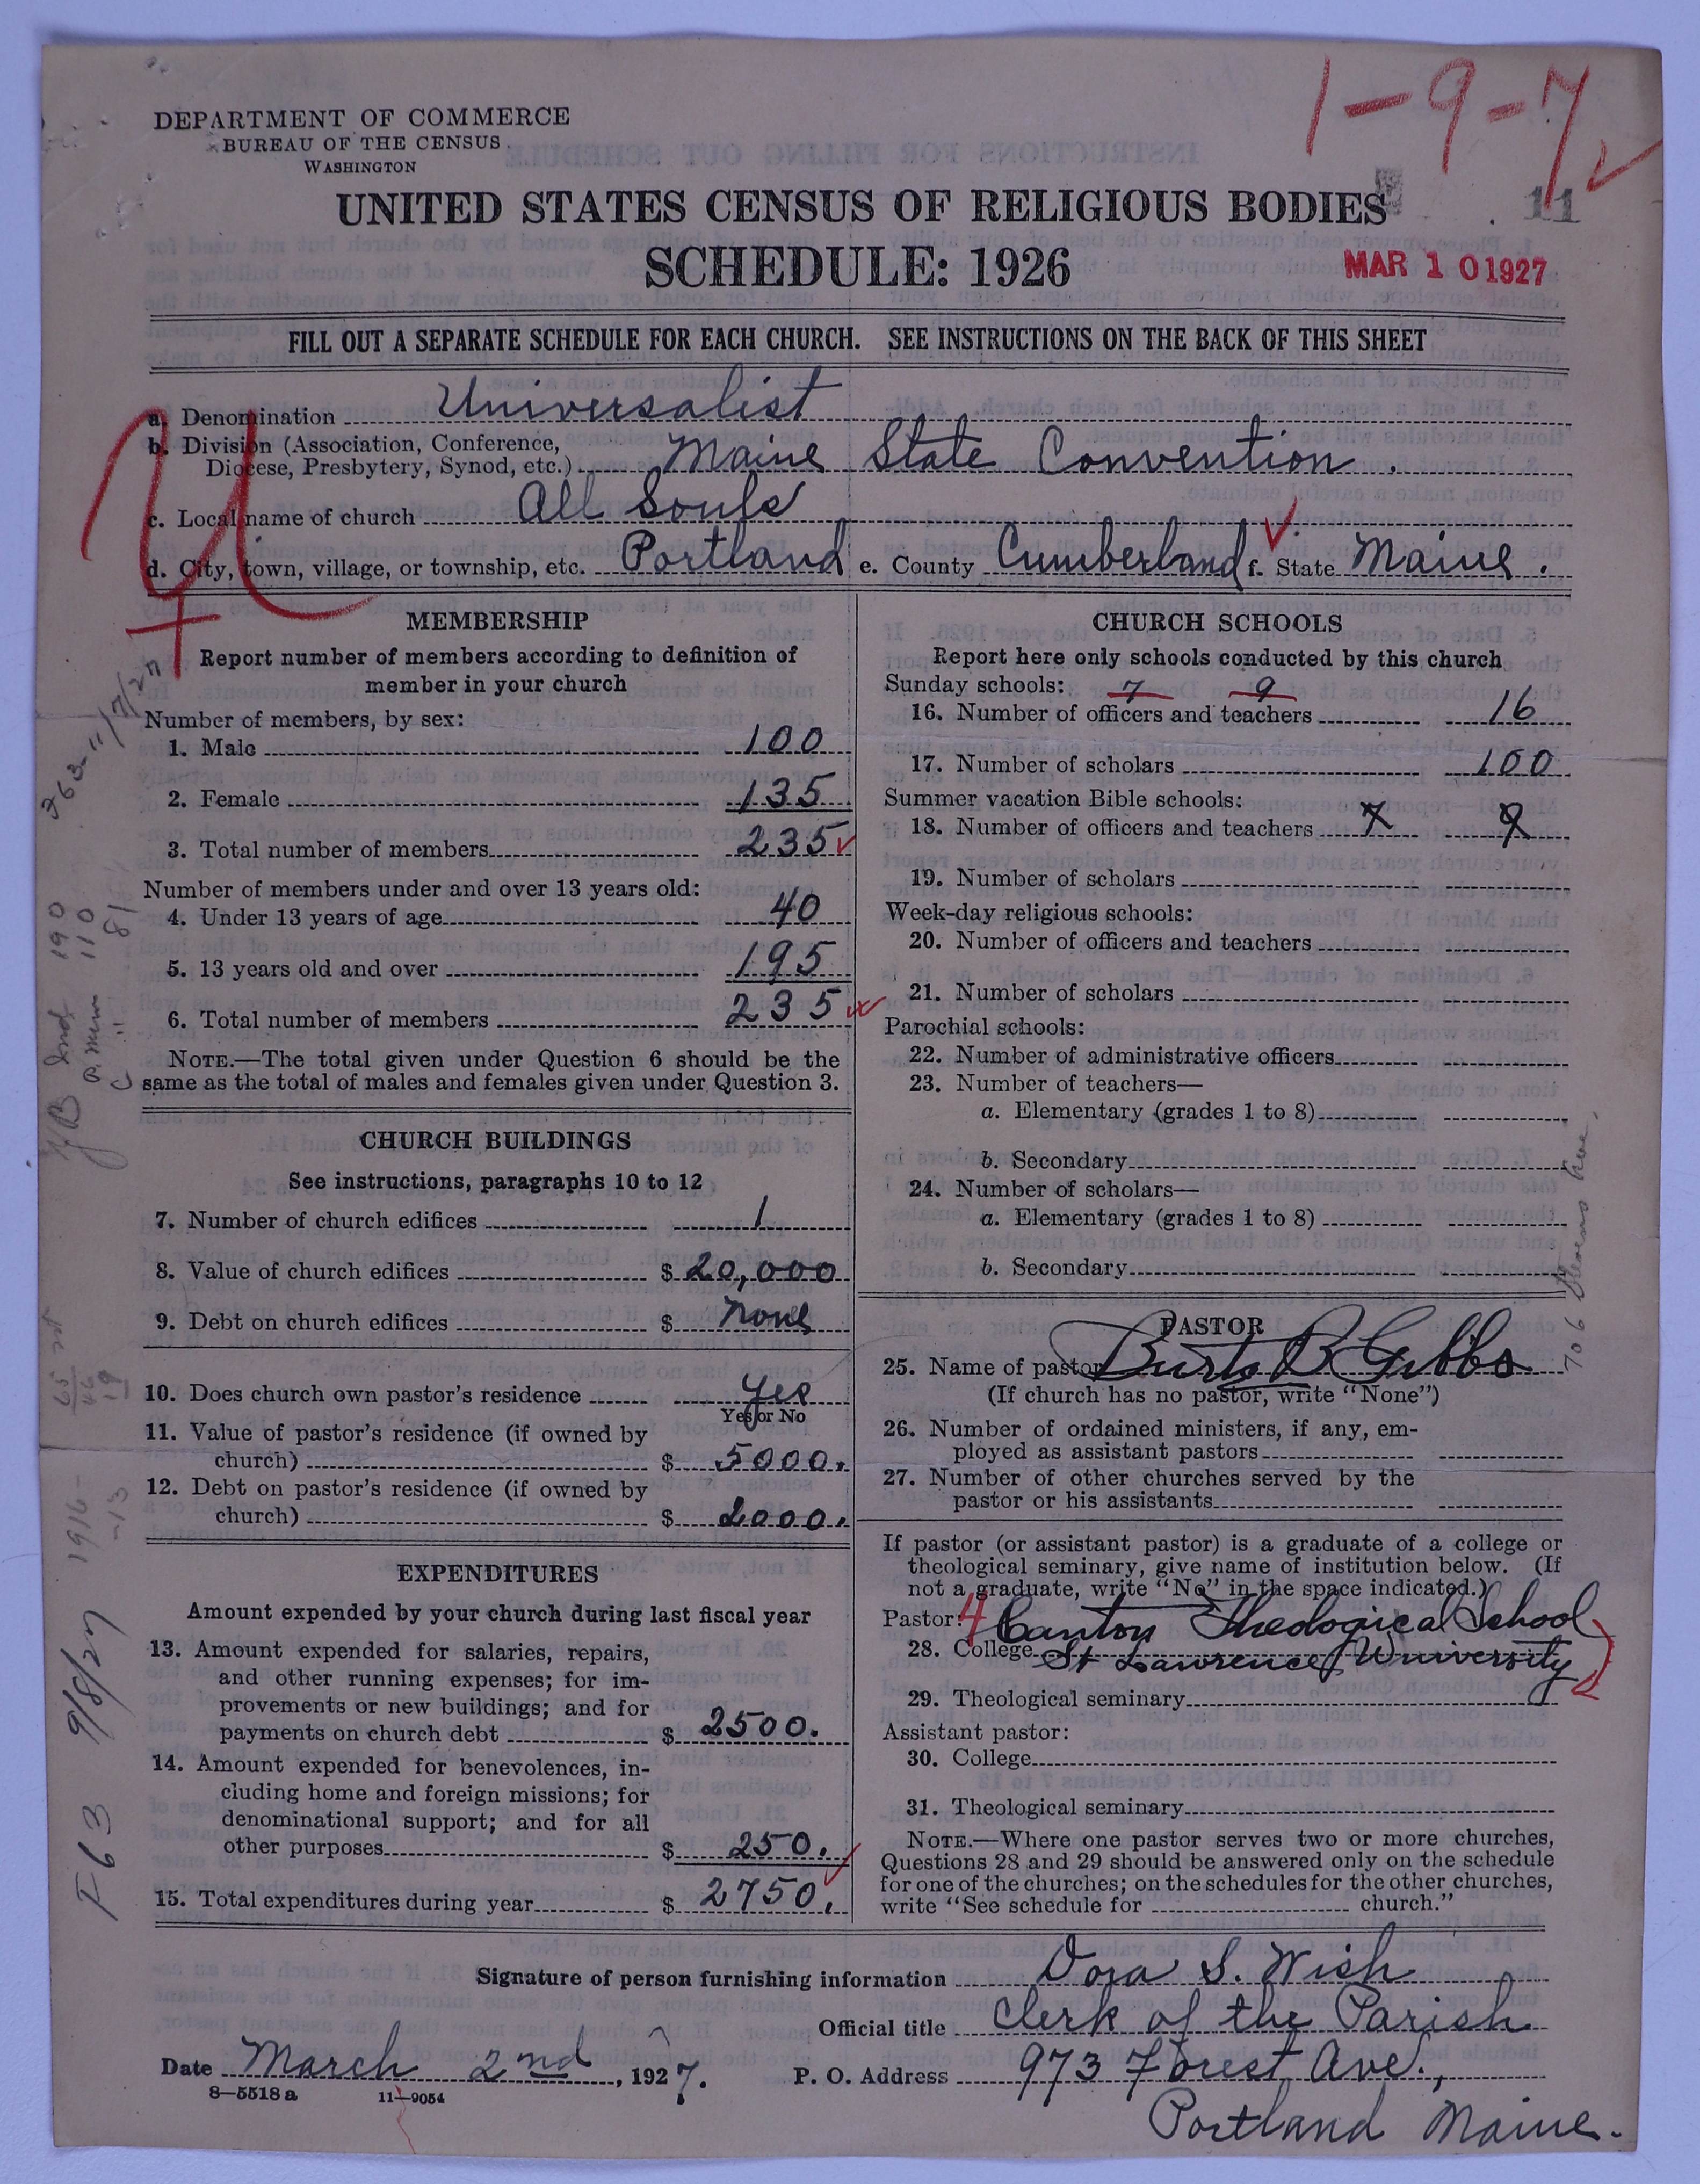 1-9-7
DEPARTMENT OF COMMERCE
BUREAU OF THE CENSUS
WASHINGTON
UNITED STATES CENSUS OF RELIGIOUS BODIES
11
SCHEDULE: 1926
MAR 10 1927
FILL OUT A SEPARATE SCHEDULE FOR EACH CHURCH. SEE INSTRUCTIONS ON THE BACK OF THIS SHEET
a. Denomination Universalist
b. Division (Association, Conference,
Diocese, Presbytery, Synod, etc.) Maine State Convention.
c. Local name of church All Souls
d. City, town, village, or township, etc. Portland e. County Cumberland f. State Maine.
MEMBERSHIP
Report number of members according to definition of
member in your church
Number of members, by sex:
1. Male 100
2. Female 135
3. Total number of members 235
Number of members under and over 13 years old:
4. Under 13 years of age 40
5. 13 years old and over 195
6. Total number of members 235
NOTE.—The total given under Question 6 should be the
same as the total of males and females given under Question 3.
CHURCH BUILDINGS
See instructions, paragraphs 10 to 12
7. Number of church edifices 1
8. Value of church edifices $ 20,000
9. Debt on church edifices $ None
10. Does church own pastor's residence yes
Yes or No
11. Value of pastor's residence (if owned by
church) $ 5000.
12. Debt on pastor's residence (if owned by
church) $ 2000.
EXPENDITURES
Amount expended by your church during last fiscal year
13. Amount expended for salaries, repairs,
and other running expenses; for im-
provements or new buildings; and for
payments on church debt $ 2500.
14. Amount expended for benevolences, in-
cluding home and foreign missions; for
denominational support; and for all
other purposes $ 250.
15. Total expenditures during year $ 2750.
CHURCH SCHOOLS
Report here only schools conducted by this church
Sunday schools: 7 9
16. Number of officers and teachers 16
17. Number of scholars 100
Summer vacation Bible schools:
18. Number of officers and teachers 7 9
19. Number of scholars
Week-day religious schools:
20. Number of officers and teachers
21. Number of scholars
Parochial schools:
22. Number of administrative officers
23. Number of teachers—
a. Elementary (grades 1 to 8)
b. Secondary
24. Number of scholars—
a. Elementary (grades 1 to 8)
b. Secondary
PASTOR
25. Name of pastor Burte B Gibbs
(If church has no pastor, write "None")
26. Number of ordained ministers, if any, em-
ployed as assistant pastors
27. Number of other churches served by the
pastor or his assistants
If pastor (or assistant pastor) is a graduate of a college or
theological seminary, give name of institution below. (If
not a graduate, write "No" in the space indicated.)
Pastor: 4 Canton Theological School
28. College St Lawrence University
29. Theological seminary
Assistant pastor:
30. College
31. Theological seminary
NOTE.—Where one pastor serves two or more churches,
Questions 28 and 29 should be answered only on the schedule
for one of the churches; on the schedules for the other churches,
write "See schedule for church."
Signature of person furnishing information Dora S. Wish
Official title Clerk of the Parish
Date March 2nd, 1927. P. O. Address 973 Forest Ave.,
Portland Maine.
8-5518 a 11-9054
363-11/7/27
190
110
81
1916-
-13
F63 9/8/27
706 Stevens Ave.